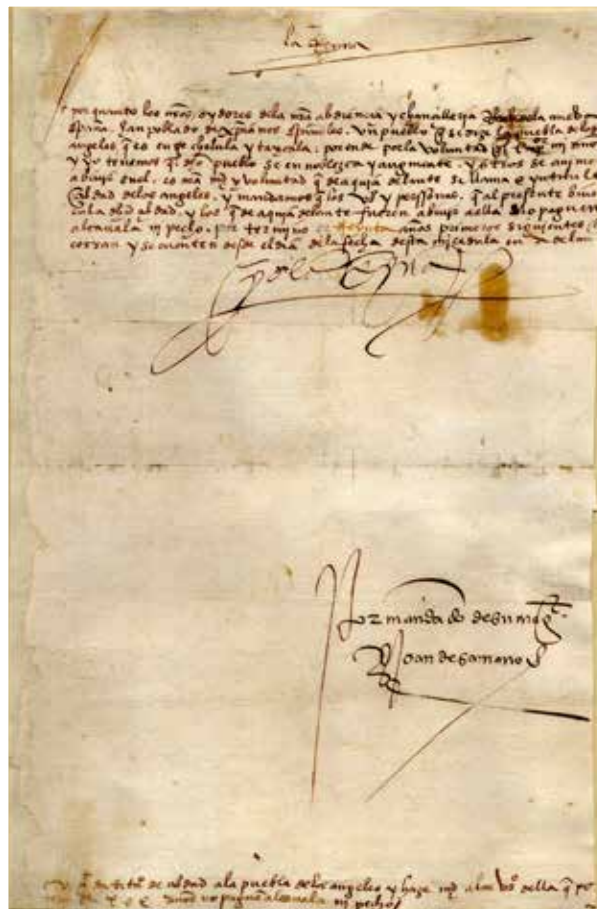 la Reyna
por quanto los nros oydores dela nra abdiencia y chancilleria Real dela nueva
españa han poblado de xpianos españoles vn pueblo q se dize la puebla delos
angeles q es entre cholula y taxcala. porende por la voluntad ql enperador mi señor
y yo tenemos ql dho pueblo se ennoblezca y augmente. y otros se animen
a biuir enel. es nra md y voluntad q de aqui adelante se llame e yntitule
Cibdad delos angeles. y mandamos q los vos y personas. q al presente biuen
enla dha cibdad. y los q de aqui adelante fueren a biuir a ella no paguen
alcauala ni pecho. por termino de treynta años primeros siguientes q
corran y se cuenten desde el dia dela fecha desta mi cedula en adelante
yo la Reyna
Por mandado de su mag.
Joan de samano
titulo de cibdad ala puebla delos angeles y haze md alos vos della q por
XXX años no paguen alcauala ni pechos